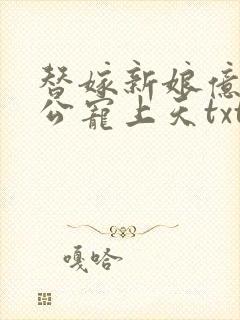 替嫁新娘亿
公宠上天txt
嘎哈